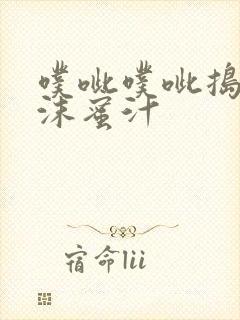 噗呲噗呲捣
沫蜜汁
宿命lii